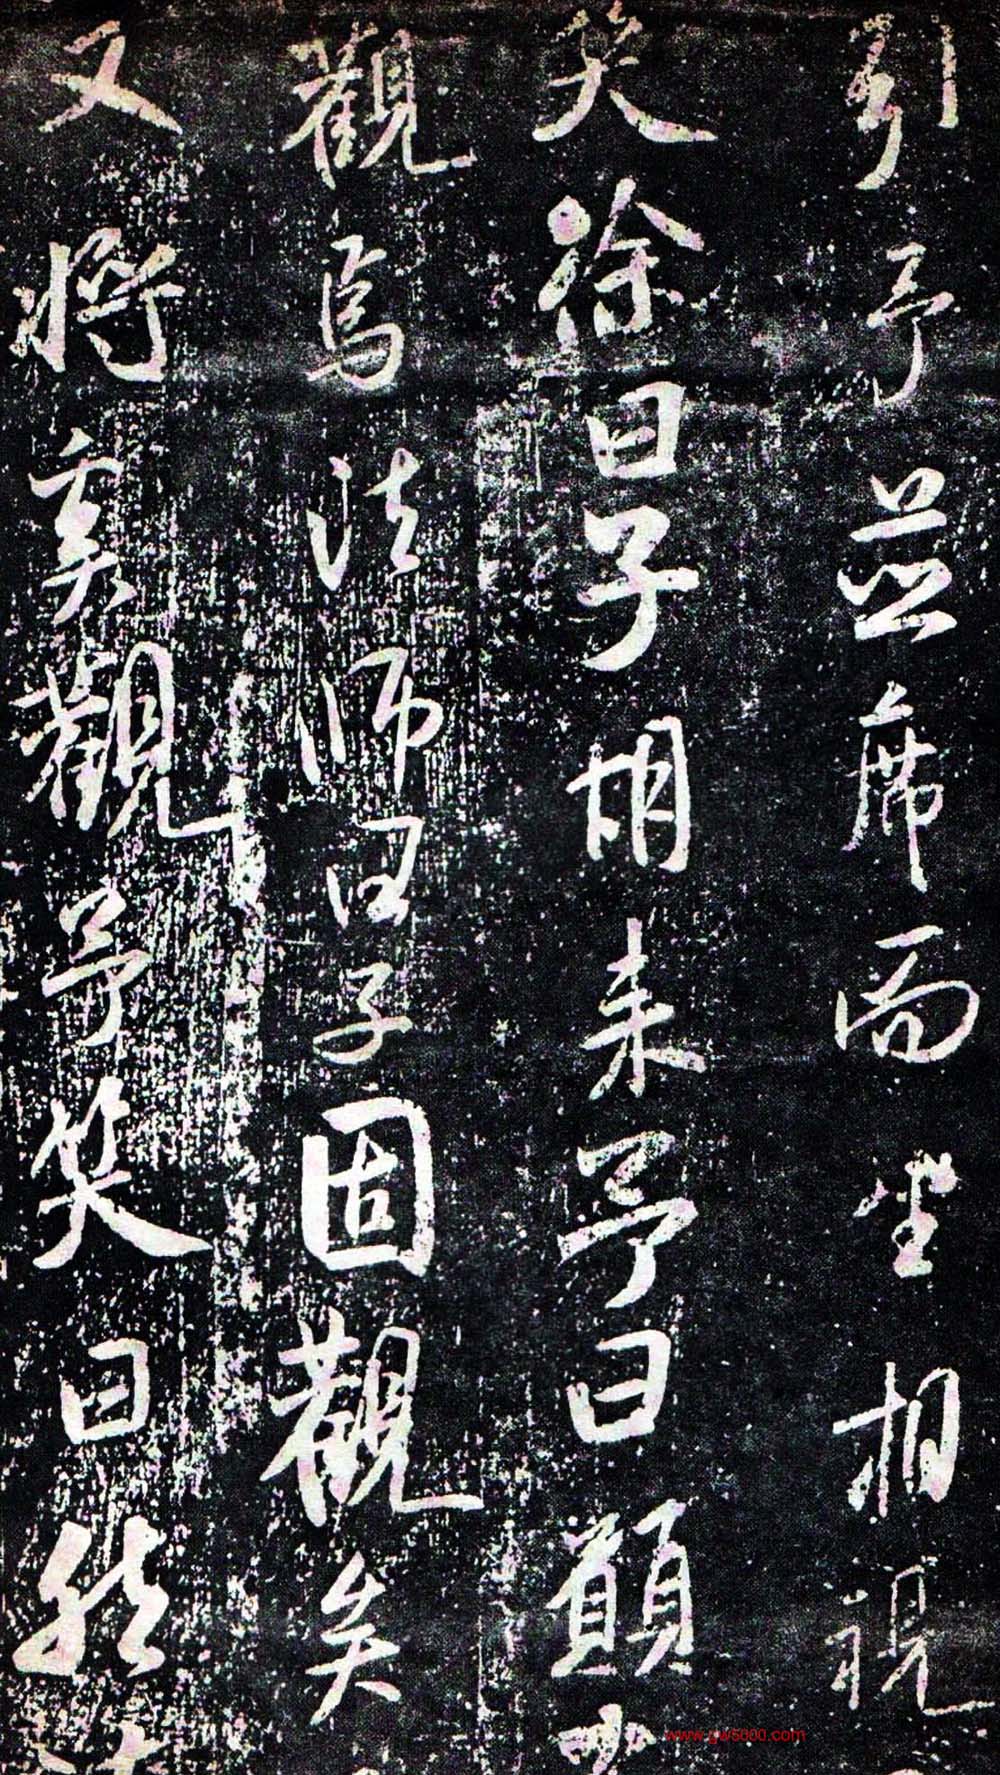 引予並席而坐相視
笑徐曰子胡来予曰願
觀焉法師曰子固觀矣
又將奚觀予笑曰然
www.gw5000.com